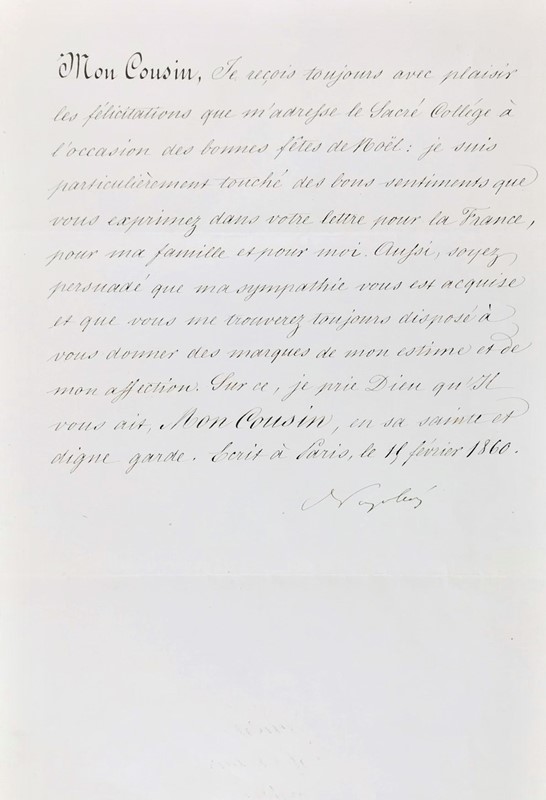 Mon Cousin, Je reçois toujours avec plaisir
les félicitations que m'adresse le Sacré Collége à
l'occasion des bonnes fêtes de Noël: je suis
particulièrement touché des bons sentiments que
vous exprimez dans votre lettre pour la France,
pour ma famille et pour moi. Aussi, soyez
persuadé que ma sympathie vous est acquise
et que vous me trouverez toujours disposé à
vous donner des marques de mon estime et de
mon affection. Sur ce, je prie Dieu qu'Il
vous ait, Mon Cousin, en sa sainte et
digne garde. Ecrit à Paris, le février 1860.
Napoléon